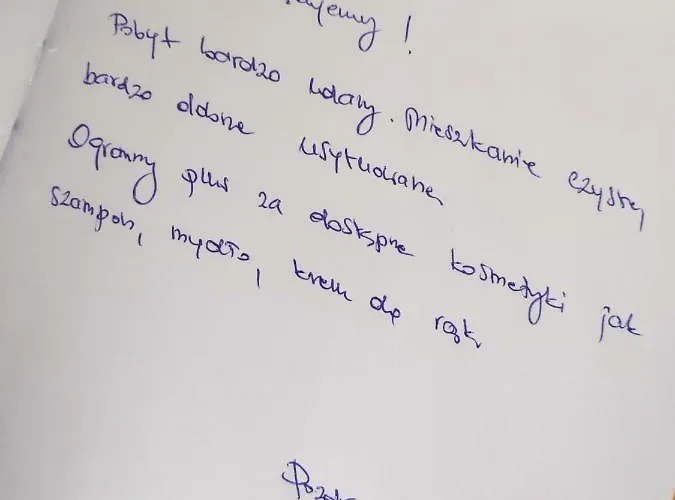 !
Pobyt bardzo udany. Mieszkanie czyste,
bardzo dobrze usytuowane
Ogromny plus za dostępne kosmetyki jak
szampon, mydło, krem do rąk